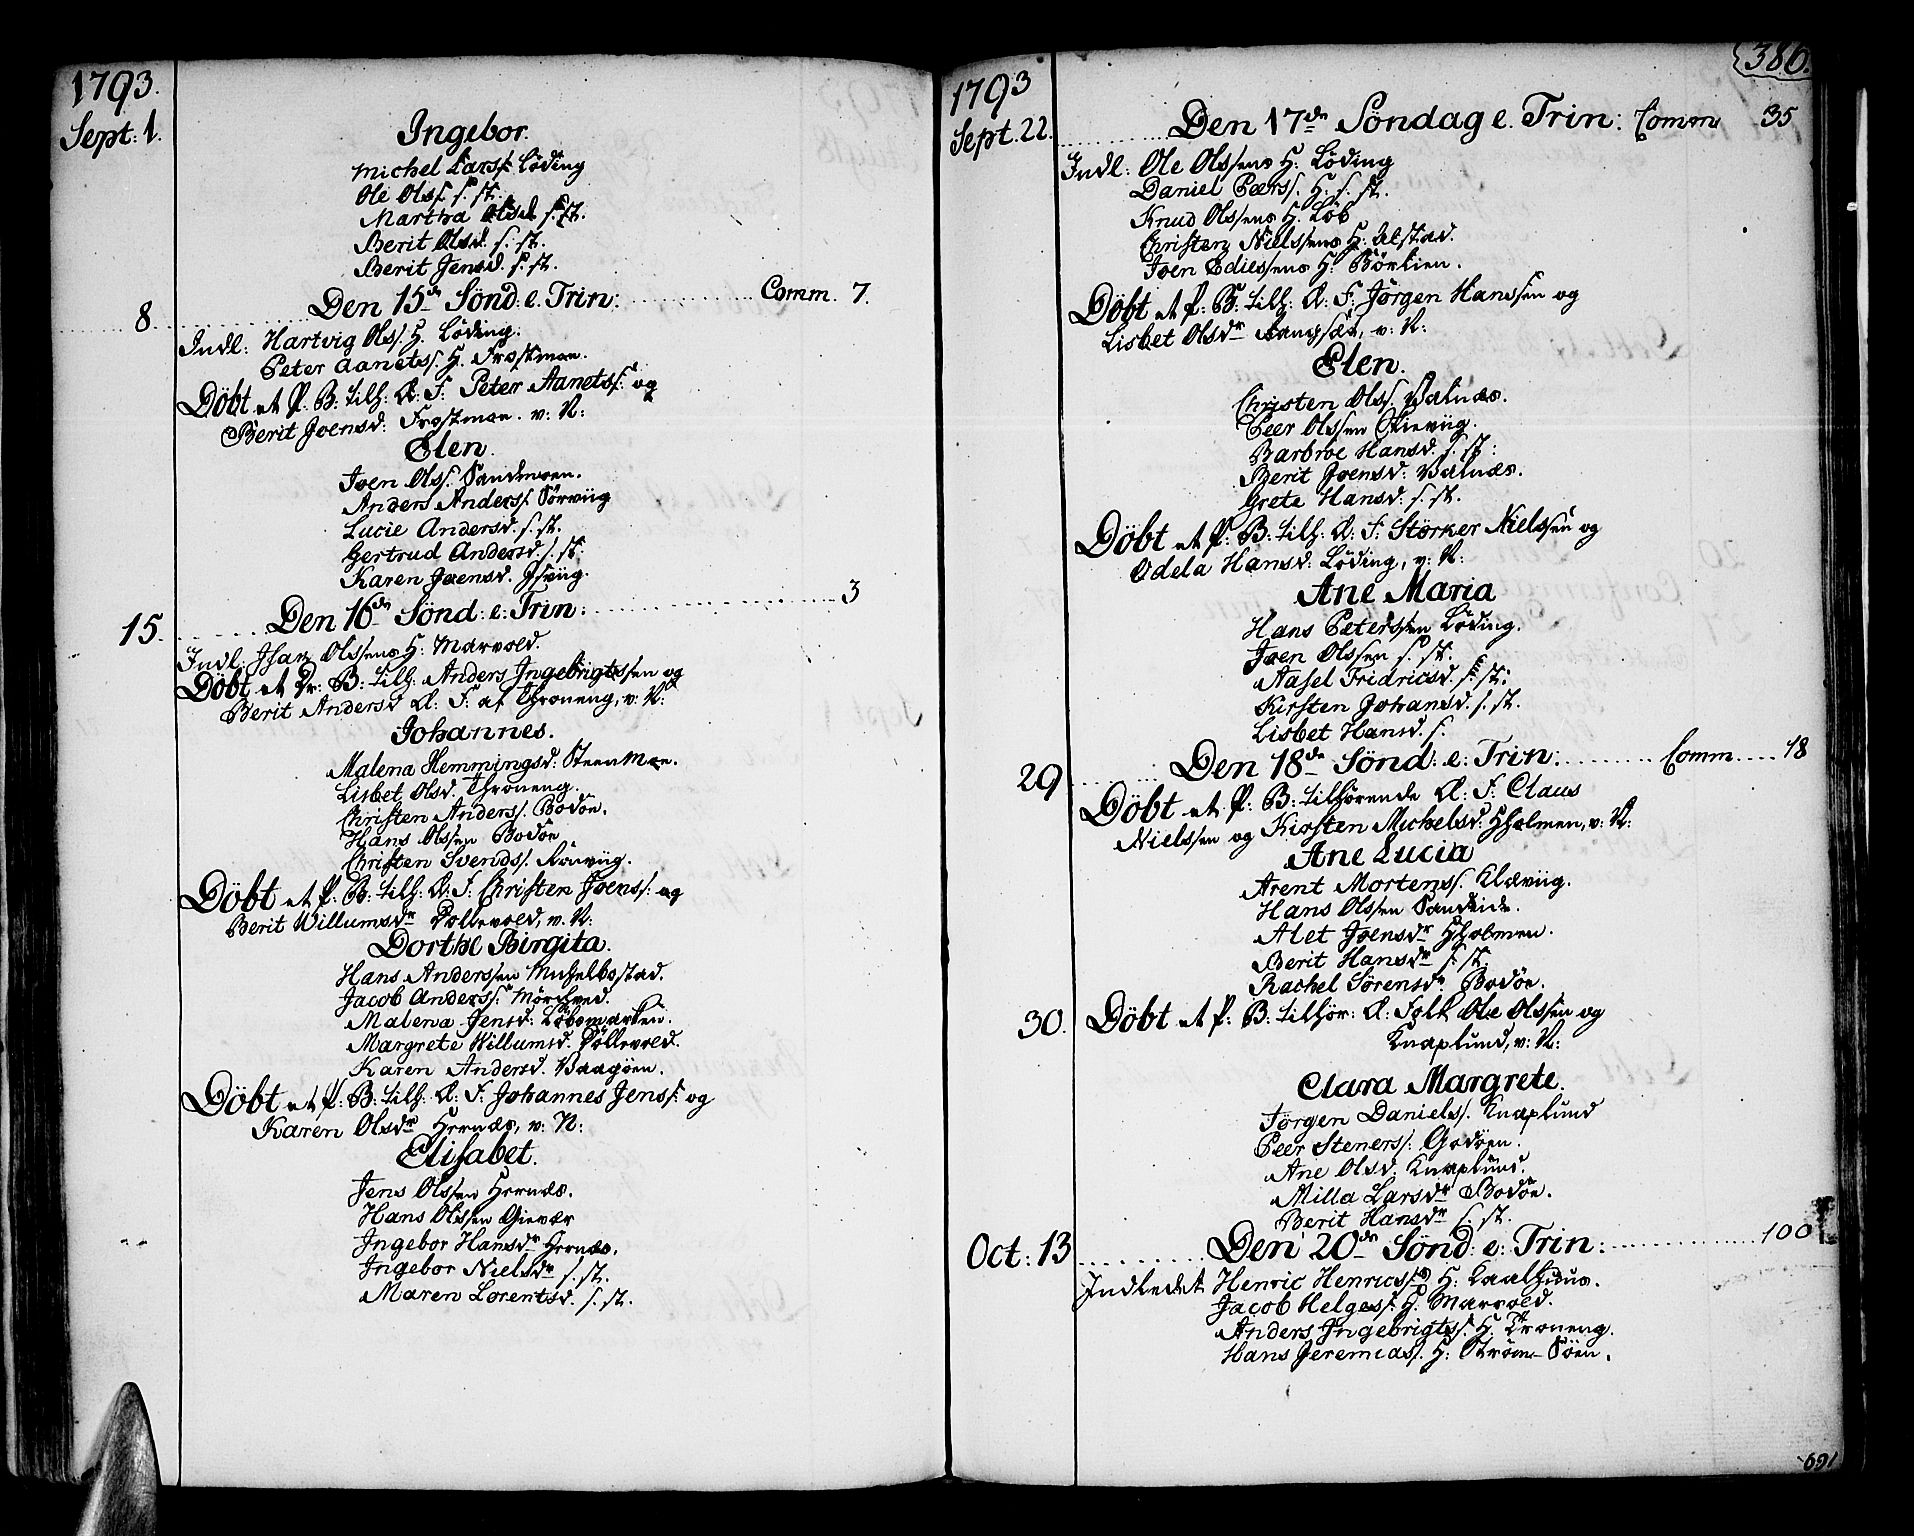 1793.
Sept: 1.
Ingebor.
Michel Larss: Löding
Ole Olss. s. st.
Martha Olsd. s. st.
Berit Olsd. s. st.
Berit Jensd. s. st.
8. Den 15de Sönd. e. Trin: Comm. 7.
Indl: Hartvig Olss. H. Löding.
Peter Aanetss. H. Frostmoe.
Döbt et P. B: tilh: A: F: Peter Aanetss: og
Berit Joensd: Frostmoe. v: N:
Elen.
Joen Olss. Sandmoen.
Anders Anderss. Sörviig
Lucie Andersd. s. st.
Gertrud Andersd. s. st:
Karen Joensd. Isviig.
15. Den 16de Sönd: e: Trin: 3
Indl: Isak Olssens H: Marvold.
Döbt et Dr: B: tilh: Anders Ingebrigtssen og
Berit Andersd A: F: af Throneng, v: N:
Johannes.
Malena Hemmingsd: Steenmoe.
Lisbet Olsd. Throneng.
Christen Anderss. Bodöe.
Hans Olssen Bodöe
Christen Svendss. Rönviig.
Döbt et P: B: tilh: A: F: Christen Joenss: og
Berit Willumsdr Pollevold, v. N:
Dorthe Birgita.
Hans Anderssen Michelbostad.
Jacob Anderss: Mörchved.
Malena Jensd: Löbsmarken.
Margrete Willumsd. Pollevold.
Karen Andersd. Vaagöen.
Döbt et P: B: tilh: A: F: Johannes Jenss: og
Karen Olsdr Hernæs, v: N:
Elisabet.
Jens Olssen Hernæs.
Hans Olssen Gievær
Ingebor Hansdr Hernæs.
Ingebor Nielsdr s. st.
Maren Lorentsd. s. st.
386.
1793
Sept. 22. Den 17de Söndag e. Trin: Comm 35
Indl: Ole Olssens H. Löding
Daniel Pærss. H. s. st.
Knud Olssens H. Löb
Christen Nielssens H: Alstad.
Joen Ediessens H: Börlien.
Döbt et P: B: tilh: A: F: Jörgen Hanssen og
Lisbet Olsdr Langsæt, v: N:
Elen.
Christen Olss. Valnæs.
Peer Olssen Skieviig.
Barbroe Hansd. s. st:
Berit Joensd: Valnæs.
Grete Hansd: s. st.
Döbt et P: B: tilh: A: F: Störker Nielssen og
Odela Hansd: Löding, v: N:
Ane Maria
Hans Peterssen Löding.
Joen Olssen s. st.
Aasel Fridricsd. s. st:
Kirsten Johansd. s. st.
Lisbet Hansd. s.
29 Den 18de Sönd: e: Trin: Comm. 18
Döbt et P: B: tilhörende A: F: Claus
Nielssen og Kirsten Michelsd: Hholmen, v: N:
Ane Lucia
Arent Mortenss. Klæviig.
Hans Olssen Sandeide.
Alet Joensdr Hholmen.
Berit Hansdr s. st.
Rachel Sörensdr Bodöe.
30. Döbt et P: B: tilhör: A: Folk Ole Olssen og
Knaplund, v: N:
Clara Margrete.
Jörgen Danielss. Knaplund
Peer Steners: Godöen.
Ane Olsd: Knaplund.
Milla Larsdr Bodöe.
Berit Hansdr s. st.
Oct: 13 Den 20de Sönd: e: Trin: 100
Indledet Henric Henricss: H: Kaalhuus.
Jacob Helgess: H. Marvold.
Anders Ingebrigtss: H: Troneng.
Hans Jeremias. H: Ström-Söen.
691